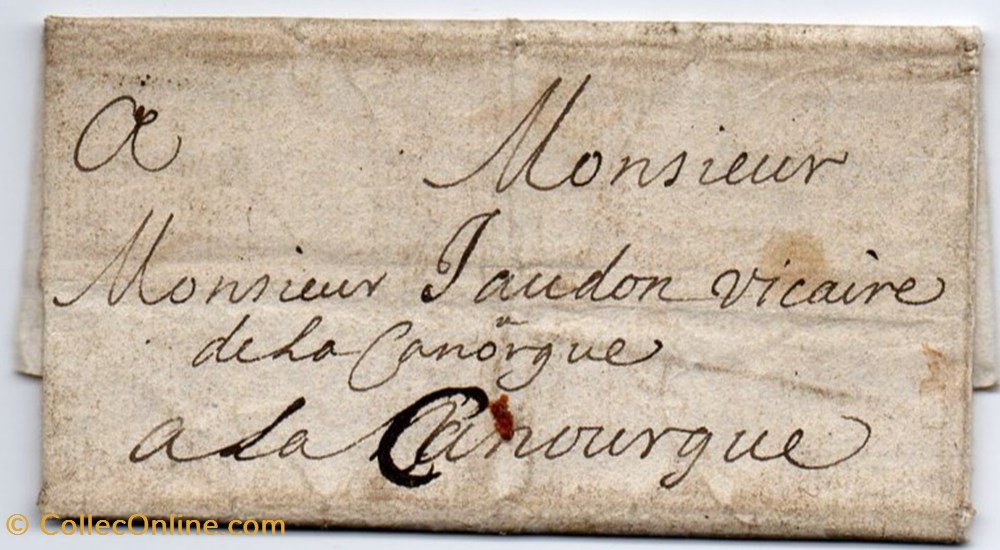 A Monsieur
Monsieur Jaudon vicaire
de La Canorgue
a La Canourgue
© CollecOnline.com